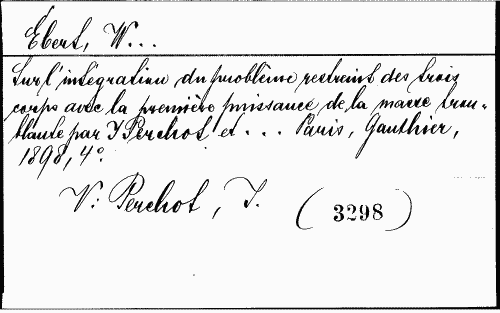 Ébert, W...
Sur l'intégration du problème restreint des trois
corps avec la première puissance de la masse trou-
blante par J Perchot et... Paris, Gauthier,
1898, 4°.
V: Perchot, J.
(3298)